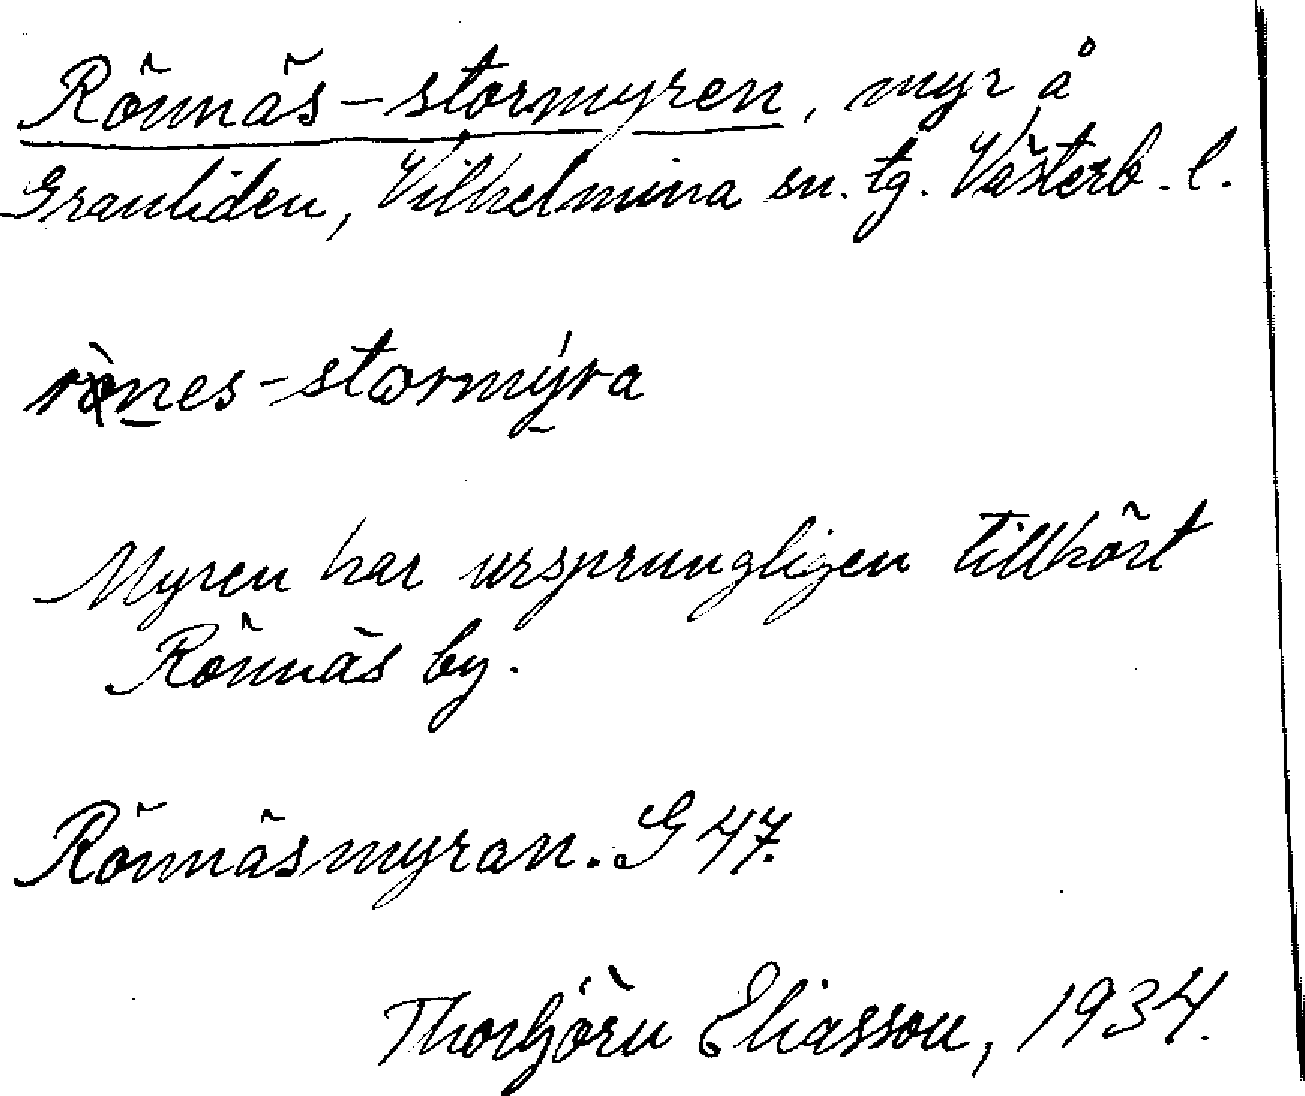 Rönnäs-stormyren, myr å
Granliden, Vilhelmina sn. tg. Västerb. l.
rònes-stormýra
Myren har ursprungligen tillhört
Rönnäs by.
Rönnäsmyran. G 47.
Thorbjörn Eliasson, 1934.